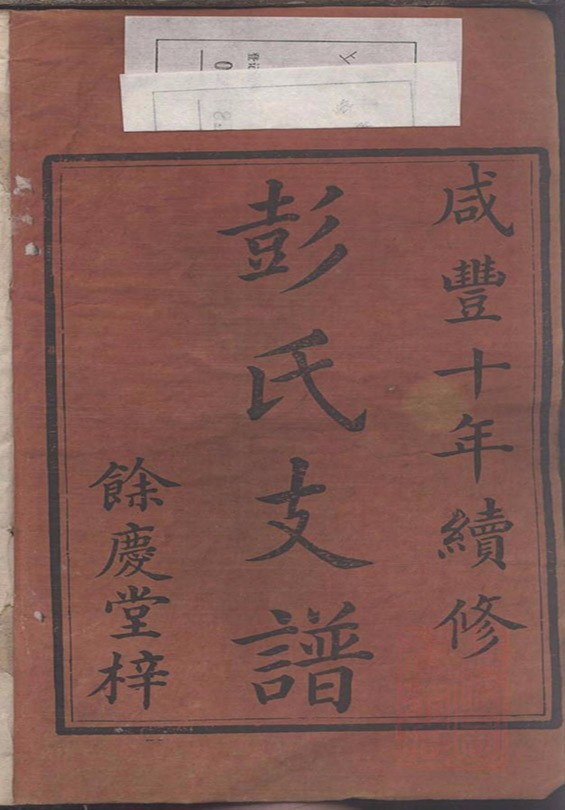 咸豐十年續修
彭氏支譜
餘慶堂梓